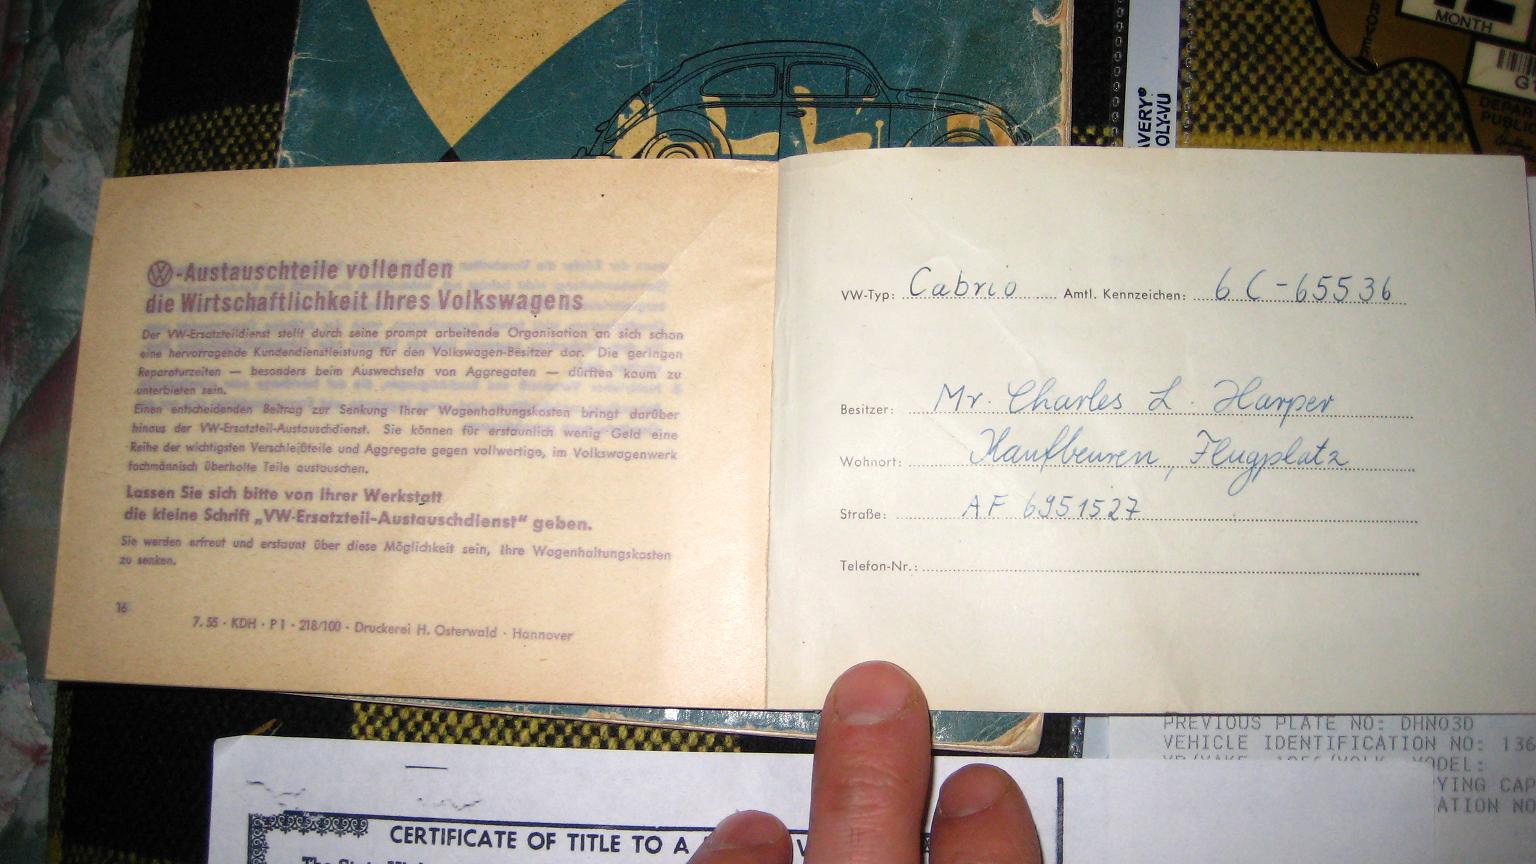 MONTH
AVERY®
OLY-VU
VW-Austauschteile vollenden
die Wirtschaftlichkeit Ihres Volkswagens
Der VW-Ersatzteildienst stellt durch seine prompt arbeitende Organisation an sich schon
eine hervorragende Kundendienstleistung für den Volkswagen-Besitzer dar. Die geringen
Reparaturzeiten — besonders beim Auswechseln von Aggregaten — dürften kaum zu
unterbieten sein.
Einen entscheidenden Beitrag zur Senkung Ihrer Wagenhaltungskosten bringt darüber
hinaus der VW-Ersatzteil-Austauschdienst. Sie können für erstaunlich wenig Geld eine
Reihe der wichtigsten Verschleißteile und Aggregate gegen vollwertige, im Volkswagenwerk
fachmännisch überholte Teile austauschen.
Lassen Sie sich bitte von Ihrer Werkstatt
die kleine Schrift „VW-Ersatzteil-Austauschdienst“ geben.
Sie werden erfreut und erstaunt über diese Möglichkeit sein, Ihre Wagenhaltungskosten
zu senken.
16
7. 55 · KDH · P 1 · 218/100 · Druckerei H. Osterwald · Hannover
VW-Typ: Cabrio Amtl. Kennzeichen: 6 C-65536
Besitzer: Mr. Charles L. Harper
Wohnort: Kaufbeuren, Flugplatz
Straße: AF 6951527
Telefon-Nr.:
PREVIOUS PLATE NO: DHN03D
VEHICLE IDENTIFICATION NO: 136
MODEL:
YING CAP
ATION NO
CERTIFICATE OF TITLE TO A